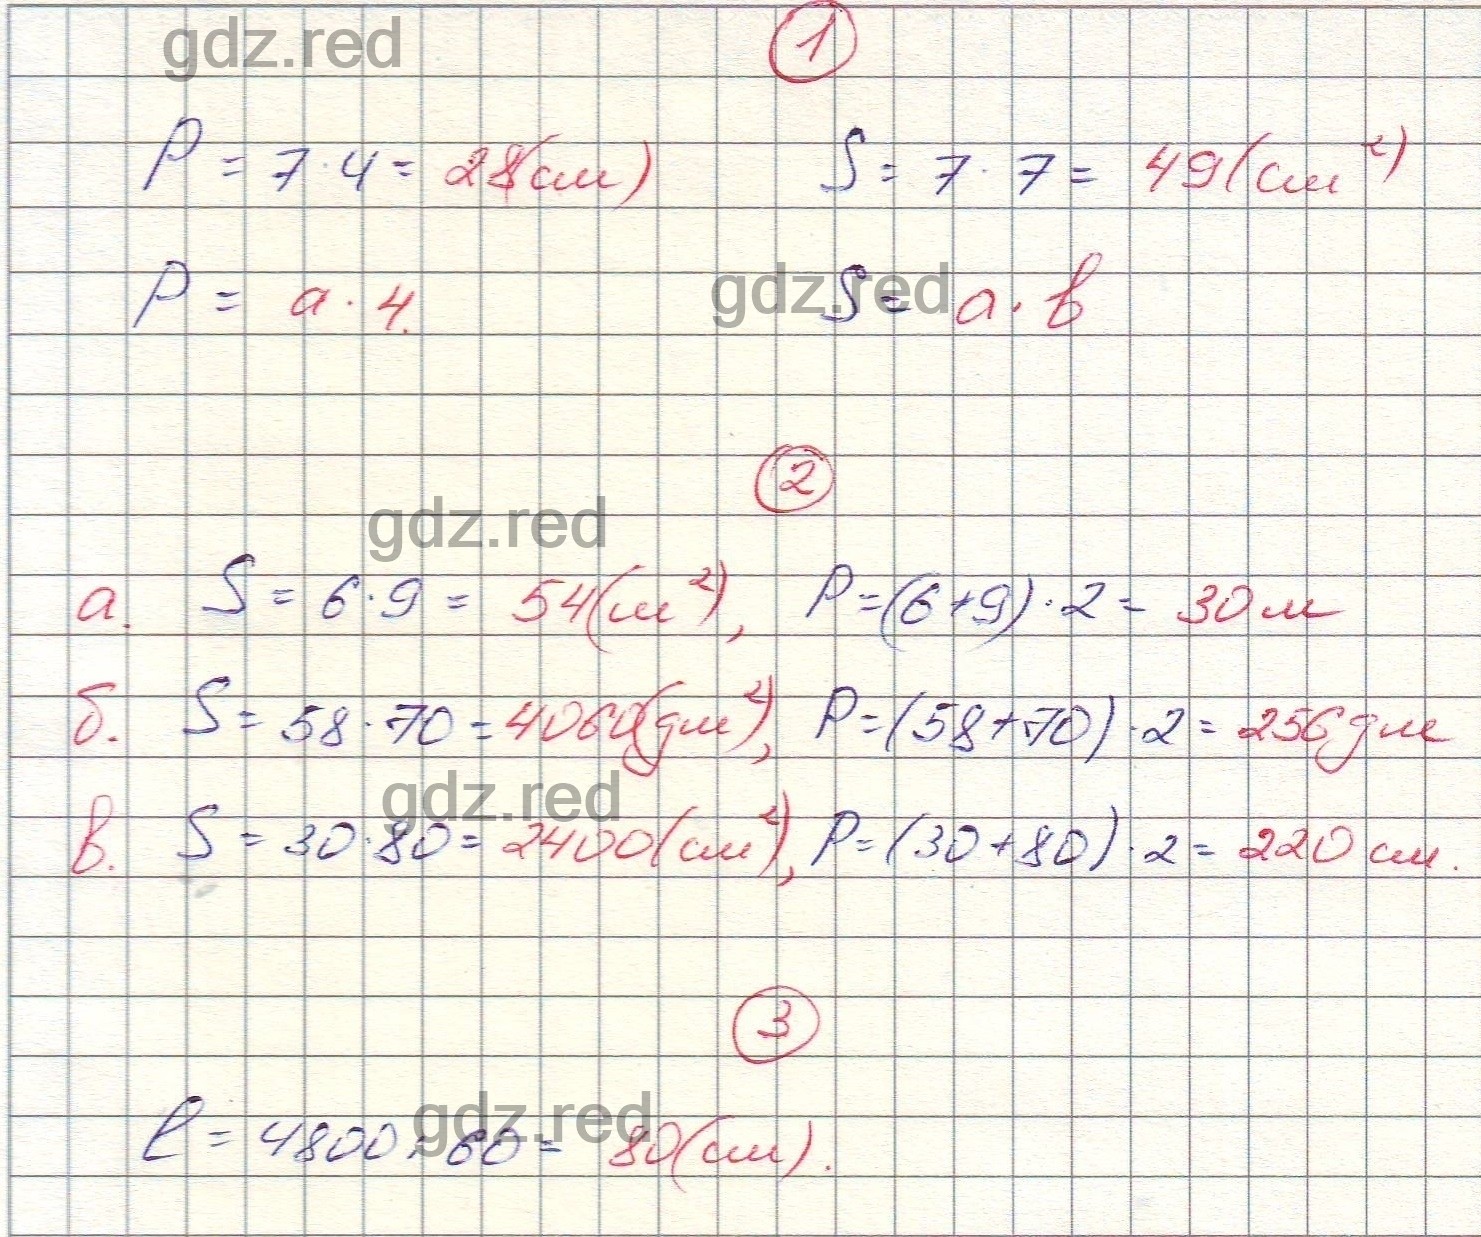 gdz.red
1
P = 7 · 4 = 28(см) S = 7 · 7 = 49(см²)
P = a · 4. S = a · b
gdz.red
2
gdz.red
а. S = 6 · 9 = 54(м²), P = (6+9) · 2 = 30 м
б. S = 58 · 70 = 4060(дм²), P = (58+70) · 2 = 256 дм
gdz.red
в. S = 30 · 80 = 2400(см²), P = (30+80) · 2 = 220 см.
3
gdz.red
l = 4800 : 60 = 80(см).